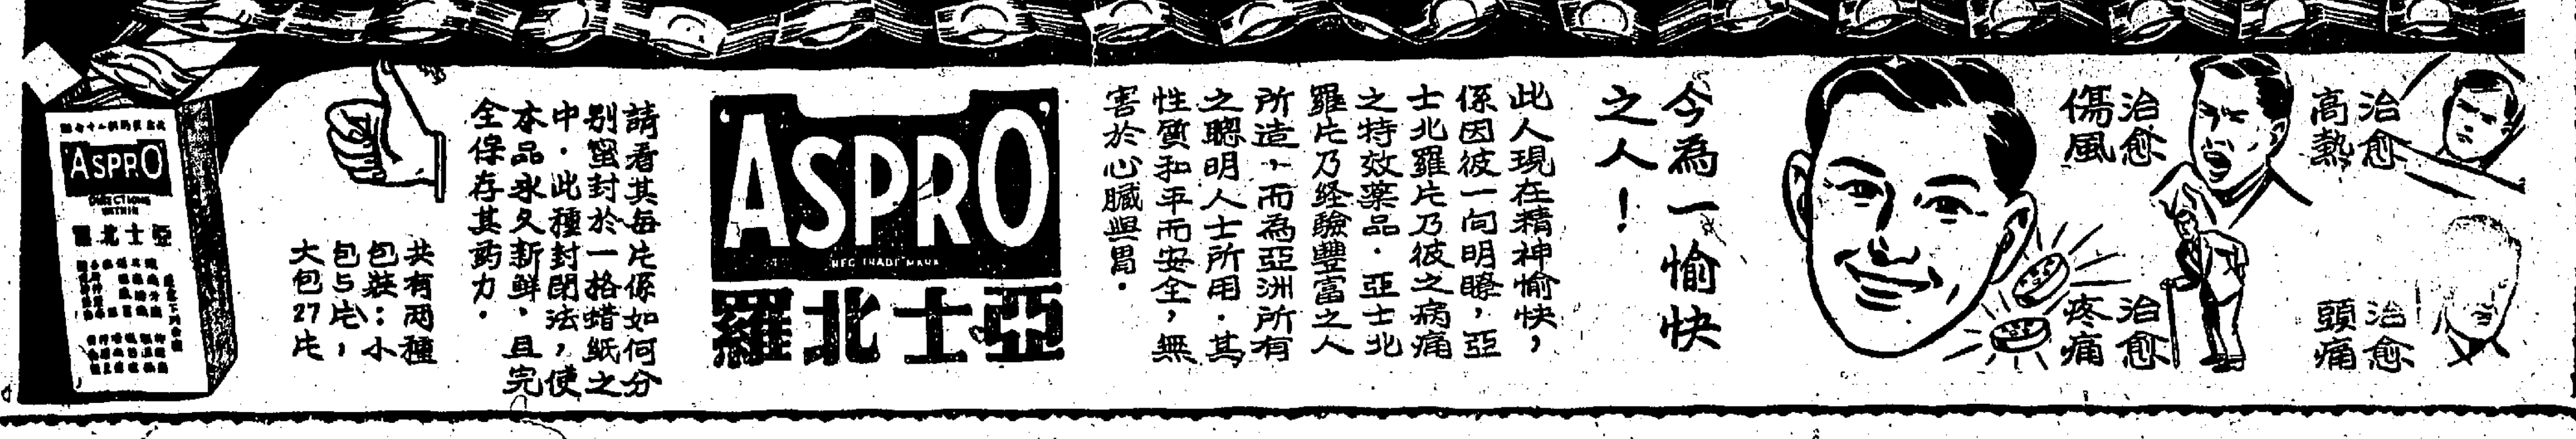 治愈
高熱
治愈
頭痛
治愈
傷風
治愈
疼痛
今為一愉快
之人！
此人現在精神愉快，
係因彼一向明瞭，亞
士北羅片乃彼之病痛
之特效藥品．亞士北
羅片乃经驗豐富之人
所造，而為亞洲所有
之聰明人士所用．其
性質和平而安全，無
害於心臟與胃．
ASPRO
REG TRADE MARK
羅北士亞
請看其每片係如何分
别蜜封於一格蜡紙之
中．此種封閉法，使
本品永久新鮮，且完
全保存其药力．
共有两種
包裝：小
包5片，
大包27片
ASPRO
DIRECTIONS
WITHIN
羅北士亞